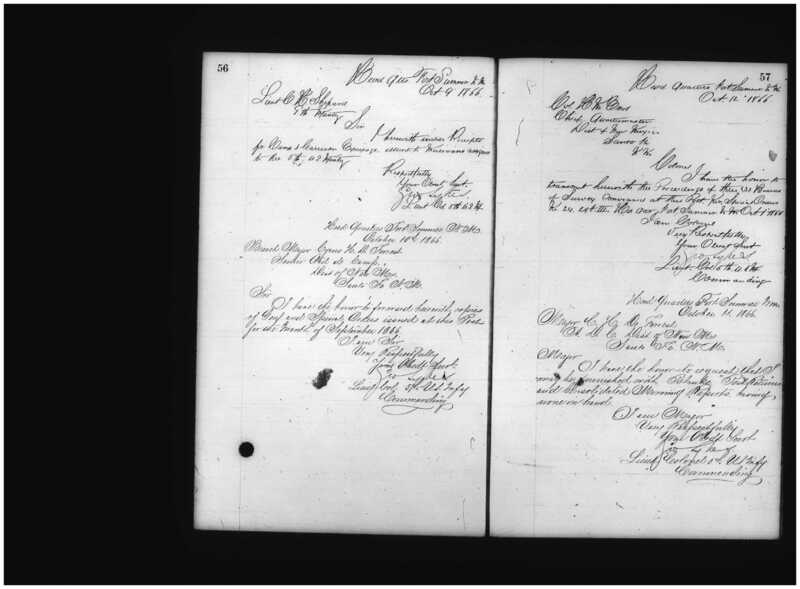 56
Head Qrs Fort Sumner N. M.
Oct 9 1866
Lieut
5th Infantry
Sir
I herewith enclose Receipts
for Camp & Garrison Equipage
to the 5th U S Infantry
Respectfully
Your Obedt Servt
Lieut Col 5th U.S. Inf
Head Quarters Fort Sumner N. M.
October 10th 1866
Brevet Major Cyrus H. De Forrest
Aid de Camp
Dist of New Mex
Santa Fe N. M.
Sir
I have the honor to forward herewith copies
of Genl and Special Orders issued at this Post
for the month of September 1866.
I am Sir
Very Respectfully
Your Obedt Servt
Geo Sykes
Lieut Col. 5th U.S. Infty
Commanding
57
Head Quarters Fort Sumner N. M.
Oct 12 1866
Col
Chief Quartermaster
Dist of New Mexico
Santa Fe
N. M.
Colonel
I have the honor to
transmit herewith the Proceedings of three (3) Boards
of Survey convened at this Post per Special Orders
I am Colonel
Very Respectfully
Your Obedt Servt
Geo Sykes
Lieut Col 5th U.S. Inf
Commanding
Head Quarters Fort Sumner N.M.
October 11. 1866.
Major C. H. De Forrest
A. D. C. Dist of New Mex
Santa Fe. N. M.
Major
I have the honor to request that I
may be furnished with Blank Post Returns
and Consolidated Morning Reports having
none on hand.
I am Major
Very Respectfully
Your Obedt Servt
Geo Sykes
Lieut Colonel 5th U.S. Infty
Commanding